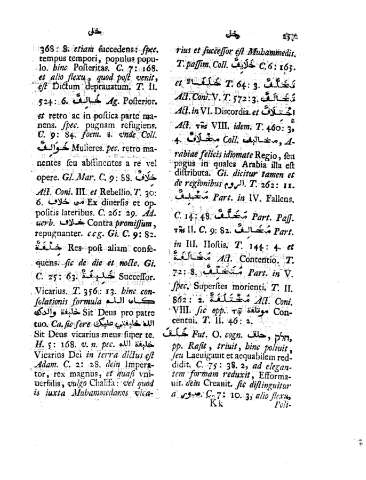 خلف
خلف
257
368: 8. etiam succedens: spec.
tempus tempori, populus popu-
lo. hinc Posteritas. C. 7: 168.
et alio flexu, quod post venit,
est Dictum depravatum. T. II.
524: 6. خالف Ag. Posterior.
et retro ac in postica parte ma-
nens. spec. pugnam refugiens.
C. 9: 84. foem. s. unde Coll.
خوالف Mulieres. pec. retro ma-
nentes seu abstinentes a re vel
opere. Gi. Mar. C. 9: 88. خلاف
Act. Coni. III. et Rebellio. T. 30:
6. من خلاف Ex diversis et op-
positis lateribus. C. 26: 29. Ad-
uerb. خلاف Contra promissum,
repugnanter. ccg. Gi. C. 9: 82.
خلفة Res post aliam conse-
quens. sic de die et nocte. Gi.
C. 25: 63. خليفة Successor.
Vicarius. T. 356: 13. hinc con-
solationis formula كان الله
خليفة والدك Sit Deus pro patre
tuo. Ca. sic fere الله خليفتي عليكم
Sit Deus vicarius meus super te.
H. 5: 168. v. n. pec. خليفة الله
Vicarius Dei in terra dictus est
Adam. C. 2: 28. dein Impera-
tor, rex magnus, et quasi vni-
uersalis, vulgo Chalifa: vel quod
is iuxta Muhammedanos vica-
rius et successor est Muhammedit.
T. passim. Coll. خلايف C. 6: 165.
et خلفاء T. 64: 3. تخلف
Act. Coni. V. T. 572: 3. اختلاف
Act. in VI. Discordia et
Act. VIII. idem. T. 460: 3,
4. مخلاف Coll. مخاليف, A-
rabiae felicis idiomate Regio, seu
pagus in quales Arabia illa est
distributa. Gi. dicitur tamen et
de regionibus الروم T. 262: 11.
مخلف Part. in IV. Fallens.
C. 14: 48. مخلف Part. Pass.
II. C. 9: 82. مخالف Part.
in III. Hostis. T. 144: 4. et
مخالفة Act. Contentio. T.
72: 8. متخلف Part. in V.
spec. Superstes morienti. T. II.
862: 2. مختلفة Act. Coni.
VIII. sic opp. موتلفة Con-
centui. T. II. 46: 2.
خلق Fut. O. cogn. חלק,
pp. Rasit, triuit, hinc poliuit,
seu Laeuigauit et aequabilem red-
didit. C. 75: 38. 2. ad elegan-
tem formam reduxit, Efforma-
uit. dein Creauit. sic distinguitur
a صور C. 7: 10. 3. alio flexu,
Kk
Poli-